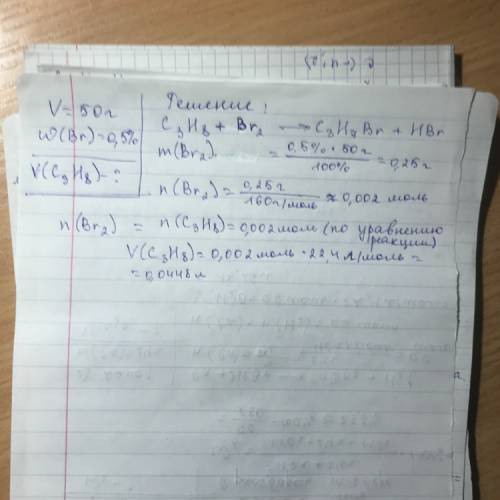 V = 50г
W(Br) = 0,5%
V(C₃H₈) - ?
Решение:
C₃H₈ + Br₂ → C₃H₇Br + HBr
m(Br₂) = 0,5% · 50г / 100% = 0,25г
n(Br₂) = 0,25г / 160г/моль ≈ 0,002 моль
n(Br₂) = n(C₃H₈) = 0,002 моль (по уравнению реакции)
V(C₃H₈) = 0,002 моль · 22,4 л/моль =
= 0,0448 л